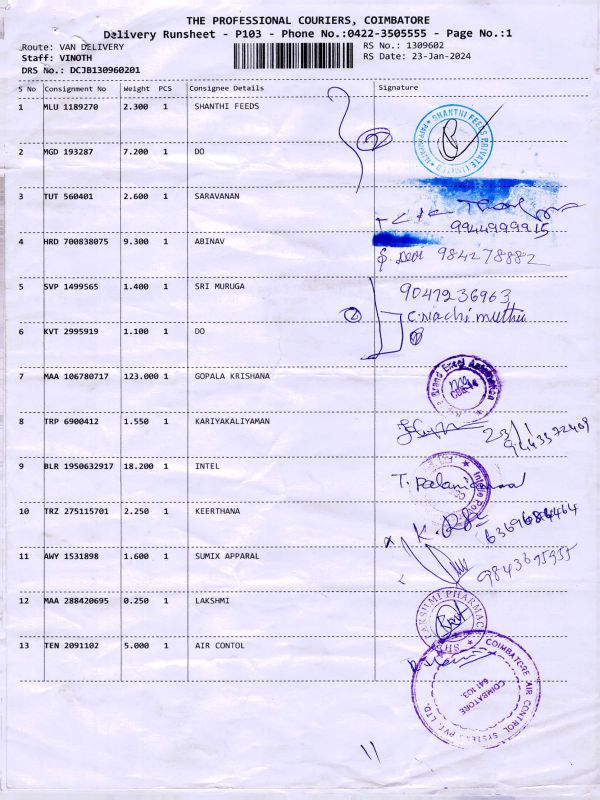 THE PROFESSIONAL COURIERS, COIMBATORE
Delivery Runsheet - P103 - Phone No.:0422-3505555 - Page No.:1
Route: VAN DELIVERY
RS No.: 1309602
Staff: VINOTH
RS Date: 23-Jan-2024
DRS No.: DCJB130960201
S No Consignment No Weight PCS Consignee Details Signature
1 MLU 1189270 2.300 1 SHANTHI FEEDS
SHANTHI FEEDS PRIVATE LIMITED
2 MGD 193287 7.200 1 DO
3 TUT 560401 2.600 1 SARAVANAN
9944999915
4 HRD 700838075 9.300 1 ABINAV
984278882
5 SVP 1499565 1.400 1 SRI MURUGA
9047236963
6 KVT 2995919 1.100 1 DO
C. Nachimuthu
7 MAA 106780717 123.000 1 GOPALA KRISHANA
8 TRP 6900412 1.550 1 KARIYAKALIYAMAN
23/1
9443372409
9 BLR 1950632917 18.200 1 INTEL
10 TRZ 275115701 2.250 1 KEERTHANA
11 AWY 1531898 1.600 1 SUMIX APPARAL
12 MAA 288420695 0.250 1 LAKSHMI
13 TEN 2091102 5.000 1 AIR CONTOL
COIMBATORE AIR CONTROL SYSTEMS PVT. LTD.
COIMBATORE
641 103.